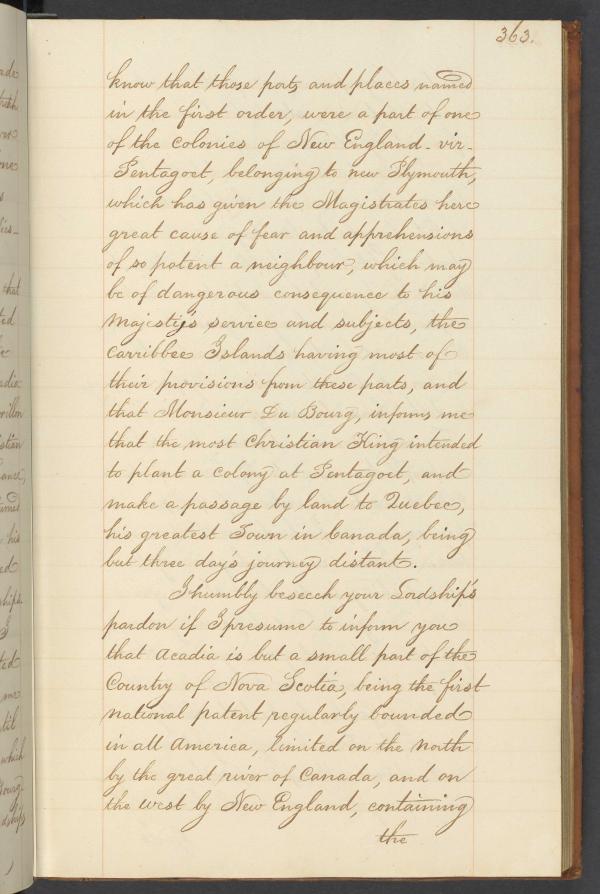 363.
know that those ports and places named
in the first order, were a part of one
of the colonies of New England - vir -
Pentagoet, belonging to new Plymouth,
which has given the Magistrates here
great cause of fear and apprehensions
of so potent a neighbour, which may
be of dangerous consequence to his
Majesty's service and subjects, the
Carribbee Islands having most of
their provisions from these parts, and
that Monsieur Du Bourg, informs me
that the most Christian King intended
to plant a colony at Pentagoet, and
make a passage by land to Quebec,
his greatest Town in Canada, being
but three day's journey distant.
I humbly beseech your Lordship's
pardon if I presume to inform you
that Acadia is but a small part of the
Country of Nova Scotia, being the first
national patent regularly bounded
in all America, limited on the North
by the great river of Canada, and on
the west by New England, containing
the